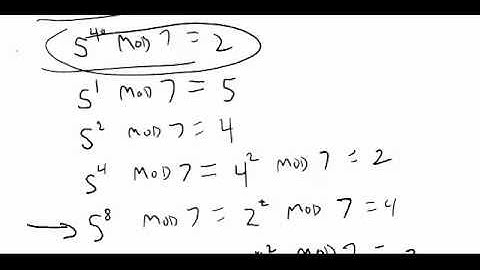 5^40 MOD 7 = 2
5^1 MOD 7 = 5
5^2 MOD 7 = 4
5^4 MOD 7 = 4^2 MOD 7 = 2
→ 5^8 MOD 7 = 2^2 MOD 7 = 4
MOD 7 =